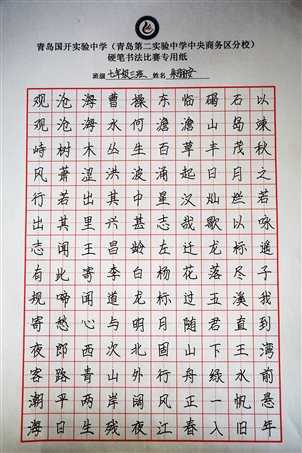 青岛国开实验中学（青岛第二实验中学中央商务区分校）
硬笔书法比赛专用纸
班级 七年级三班 姓名
观沧海曹操东临碣石以
观沧海水何澹澹山岛竦
峙树木丛生百草丰茂秋
风萧涩洪波涌起日月之
行若出其中星汉灿烂若
出其里兴甚志哉歌以咏
志闻王昌龄左迁龙标遥
有此寄李白杨花落尽子
规啼闻道龙标过五溪我
寄愁心与明月随君直到
夜郎西次北固山下王湾
客路青山外行舟绿水前
潮平两岸阔风正一帆悬
海日生残夜江春入旧年